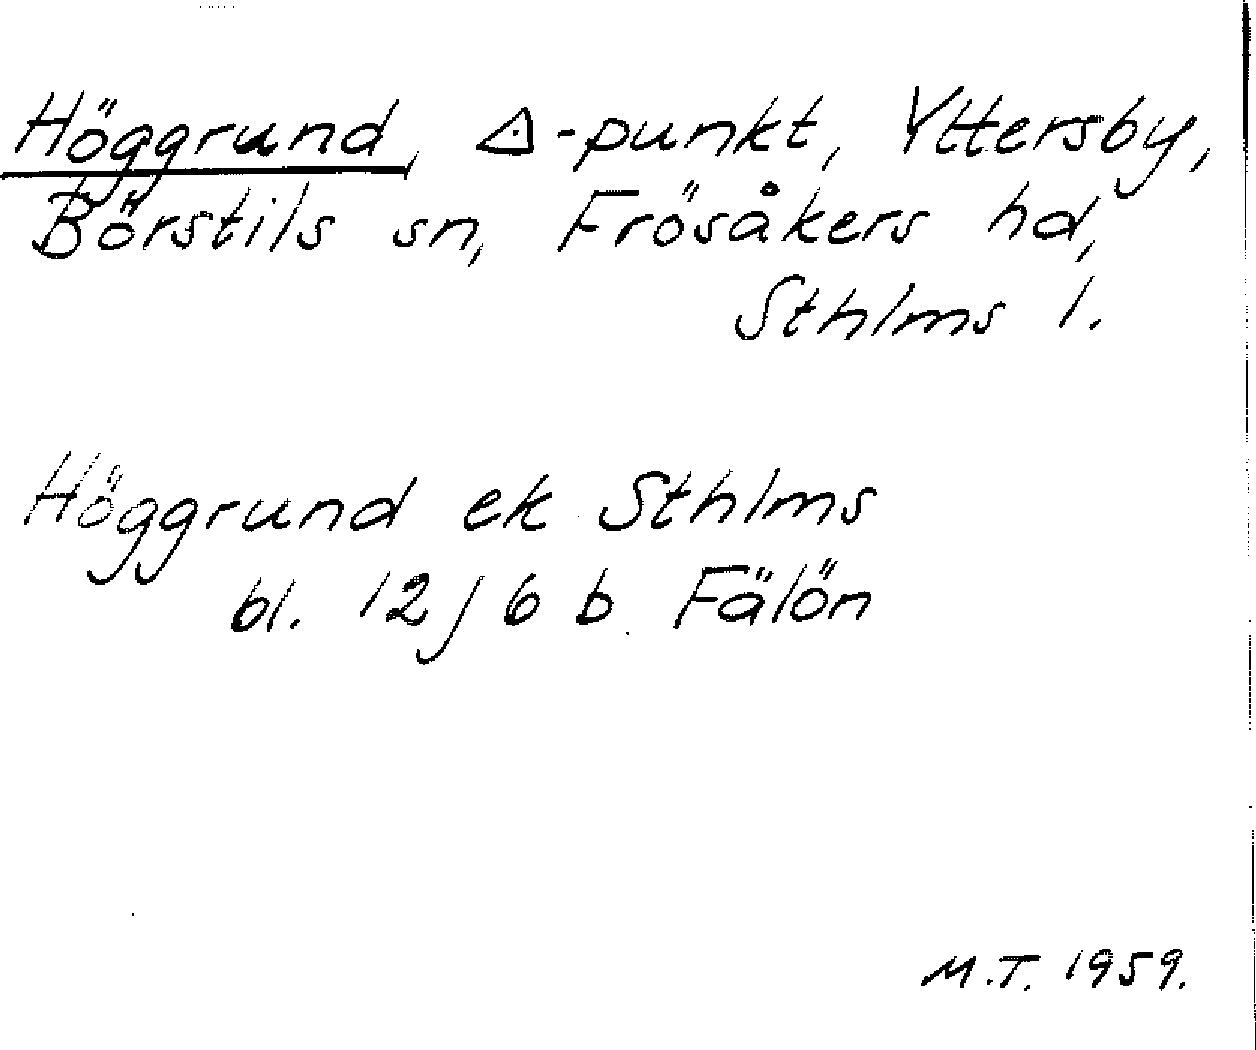 Höggrund, △-punkt, Yttersby,
Börstils sn, Frösåkers hd,
Sthlms l.
Höggrund ek Sthlms
bl. 12 j 6 b Fälön
M.T. 1959.